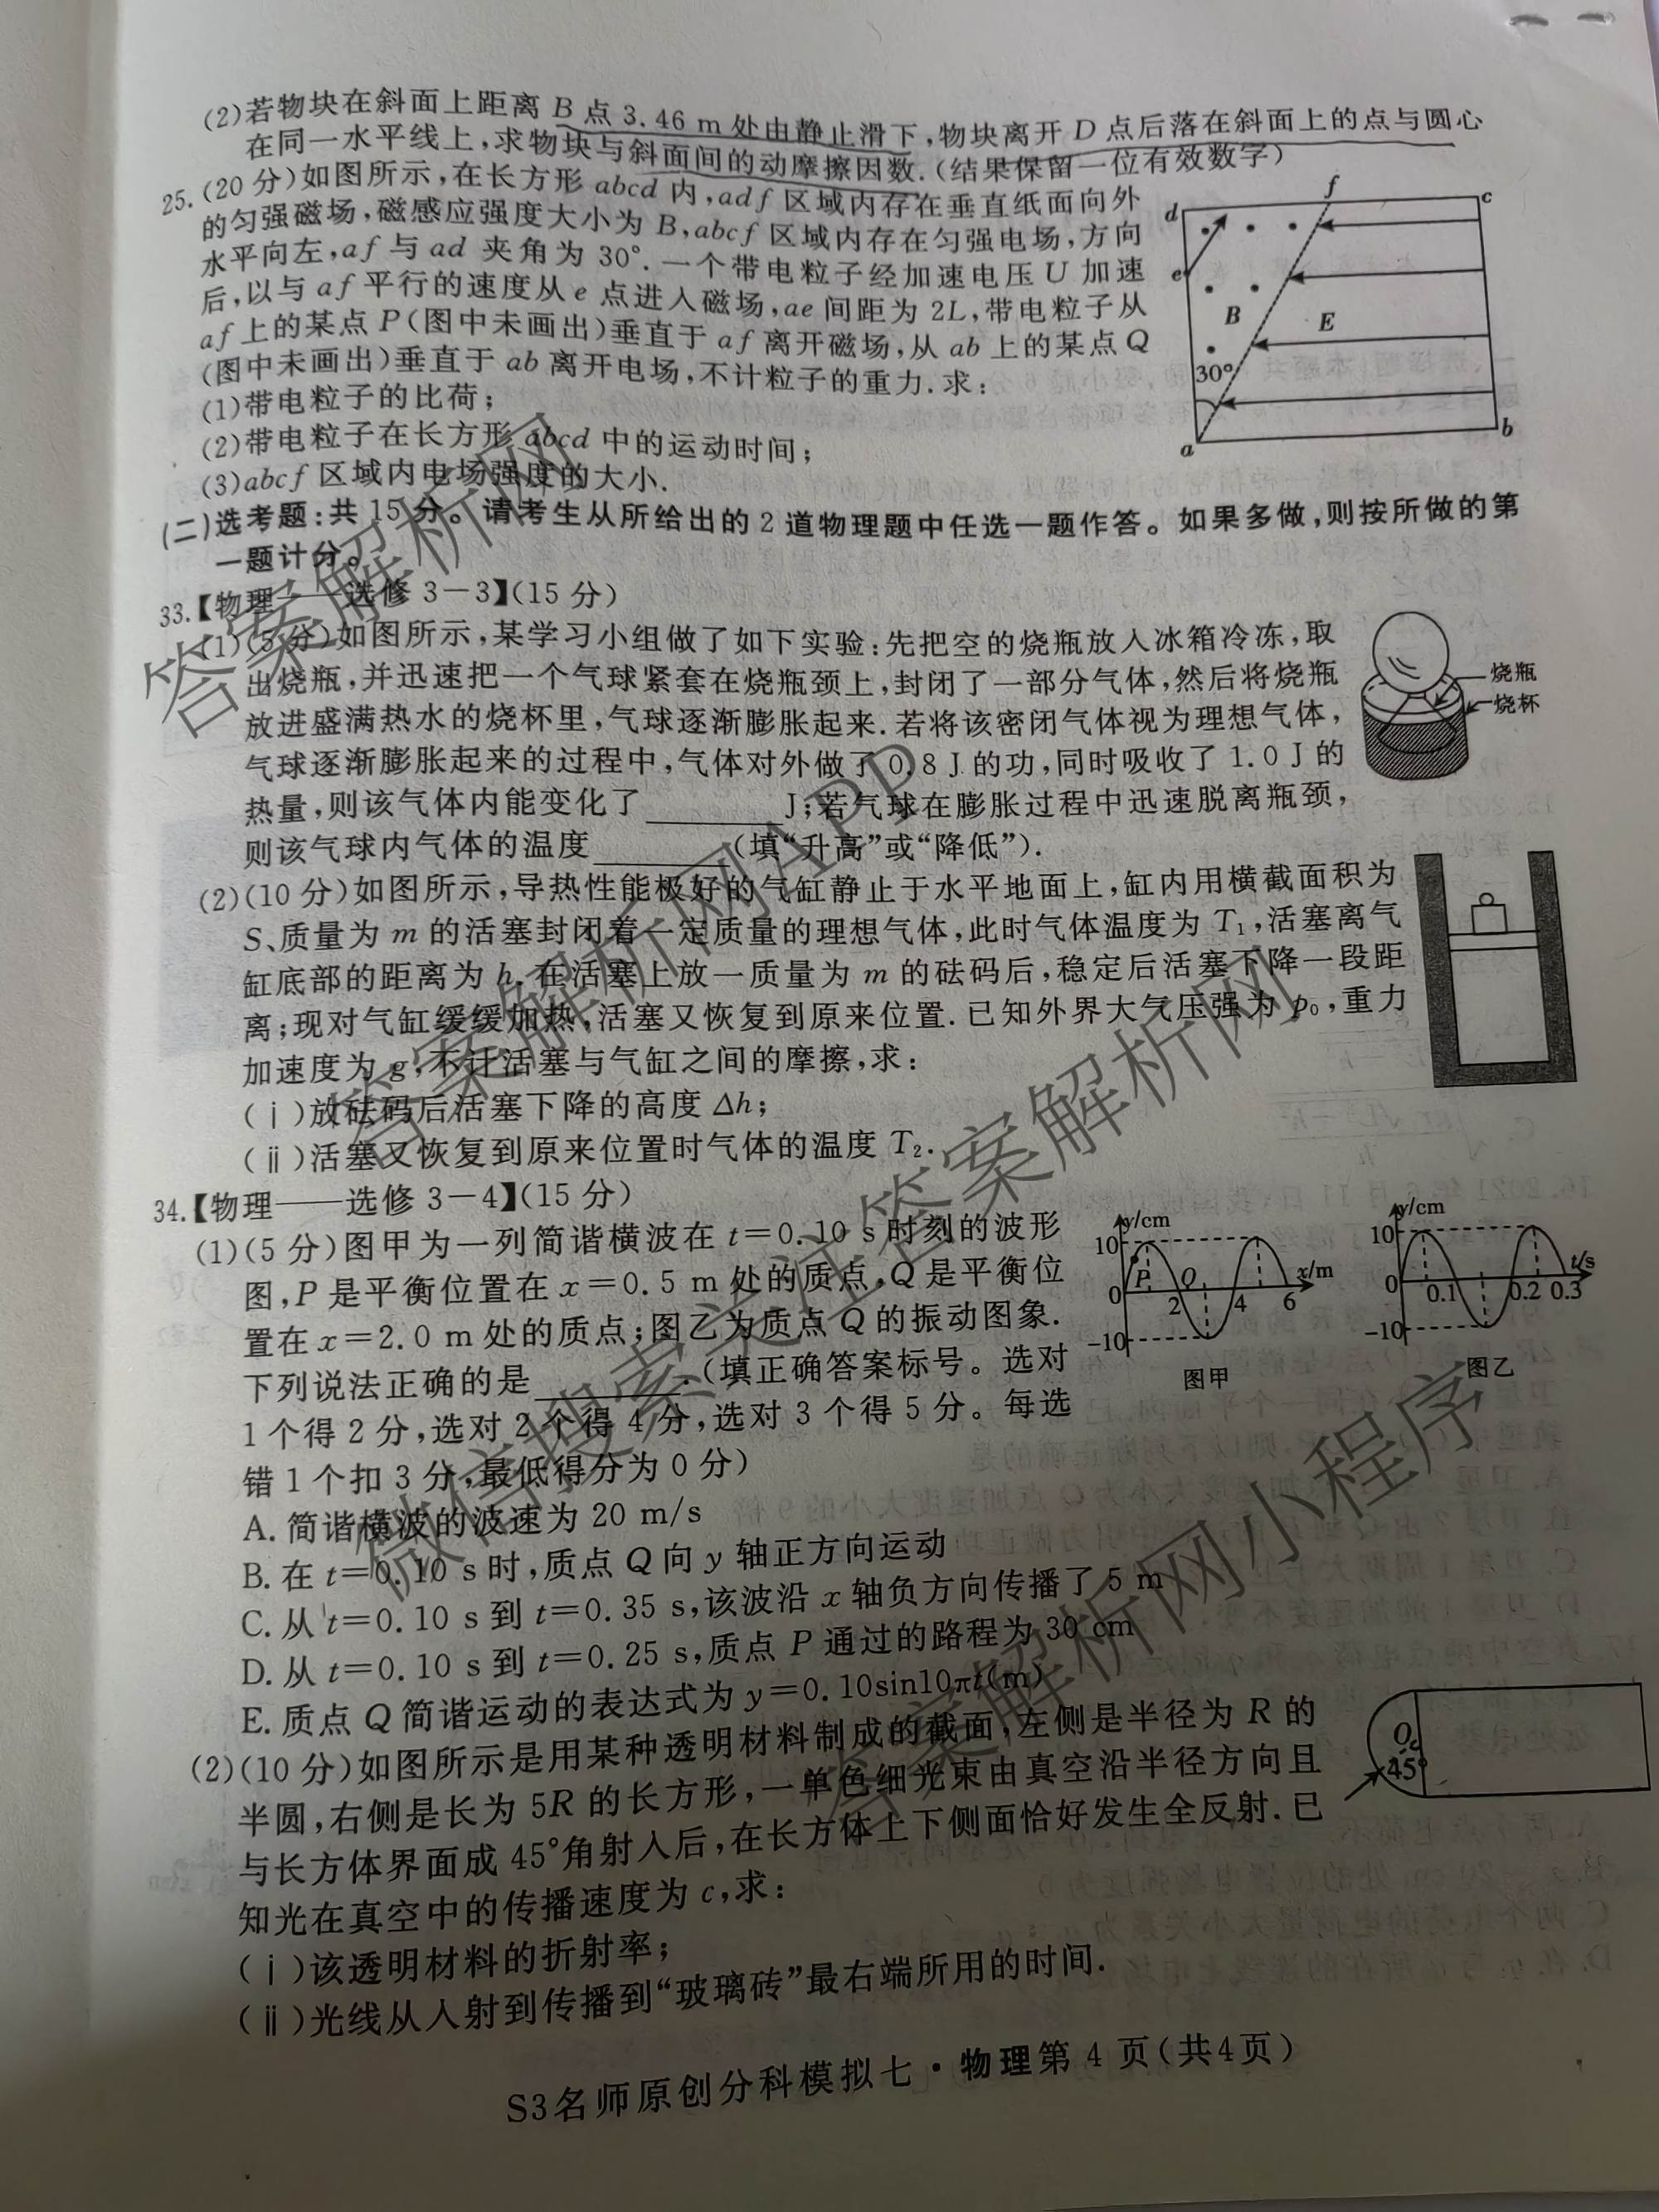 (2)若物块在斜面上距离 B 点 3.46 m 处由静止滑下,物块离开 D 点后落在斜面上的点与圆心
在同一水平线上,求物块与斜面间的动摩擦因数.(结果保留一位有效数字)
25.(20 分)如图所示,在长方形 abcd 内,adf 区域内存在垂直纸面向外
的匀强磁场,磁感应强度大小为 B,abcf 区域内存在匀强电场,方向
水平向左,af 与 ad 夹角为 30°.一个带电粒子经加速电压 U 加速
后,以与 af 平行的速度从 e 点进入磁场,ae 间距为 2L,带电粒子从
af 上的某点 P(图中未画出)垂直于 af 离开磁场,从 ab 上的某点 Q
(图中未画出)垂直于 ab 离开电场,不计粒子的重力.求:
(1)带电粒子的比荷;
(2)带电粒子在长方形 abcd 中的运动时间;
(3)abcf 区域内电场强度的大小.
d
f
c
e
B
E
30°
a
b
(二)选考题:共 15 分。请考生从所给出的 2 道物理题中任选一题作答。如果多做,则按所做的第
一题计分。
33.【物理——选修 3-3】(15 分)
(1)(5 分)如图所示,某学习小组做了如下实验:先把空的烧瓶放入冰箱冷冻,取
出烧瓶,并迅速把一个气球紧套在烧瓶颈上,封闭了一部分气体,然后将烧瓶
放进盛满热水的烧杯里,气球逐渐膨胀起来.若将该密闭气体视为理想气体,
气球逐渐膨胀起来的过程中,气体对外做了 0.8 J 的功,同时吸收了 1.0 J 的
热量,则该气体内能变化了________J;若气球在膨胀过程中迅速脱离瓶颈,
则该气球内气体的温度________(填“升高”或“降低”).
烧瓶
烧杯
(2)(10 分)如图所示,导热性能极好的气缸静止于水平地面上,缸内用横截面积为
S、质量为 m 的活塞封闭着一定质量的理想气体,此时气体温度为 T₁,活塞离气
缸底部的距离为 h.在活塞上放一质量为 m 的砝码后,稳定后活塞下降一段距
离;现对气缸缓缓加热,活塞又恢复到原来位置.已知外界大气压强为 p₀,重力
加速度为 g,不计活塞与气缸之间的摩擦,求:
(ⅰ)放砝码后活塞下降的高度 Δh;
(ⅱ)活塞又恢复到原来位置时气体的温度 T₂.
34.【物理——选修 3-4】(15 分)
(1)(5 分)图甲为一列简谐横波在 t=0.10 s 时刻的波形
图,P 是平衡位置在 x=0.5 m 处的质点,Q 是平衡位
置在 x=2.0 m 处的质点;图乙为质点 Q 的振动图象.
下列说法正确的是________.(填正确答案标号。选对
1 个得 2 分,选对 2 个得 4 分,选对 3 个得 5 分。每选
错 1 个扣 3 分,最低得分为 0 分)
y/cm
10
P
Q
x/m
0
2
4
6
-10
图甲
y/cm
10
t/s
0
0.1
0.2
0.3
-10
图乙
A. 简谐横波的波速为 20 m/s
B. 在 t=0.10 s 时,质点 Q 向 y 轴正方向运动
C. 从 t=0.10 s 到 t=0.35 s,该波沿 x 轴负方向传播了 5 m
D. 从 t=0.10 s 到 t=0.25 s,质点 P 通过的路程为 30 cm
E. 质点 Q 简谐运动的表达式为 y=0.10sin10πt(m)
(2)(10 分)如图所示是用某种透明材料制成的截面,左侧是半径为 R 的
半圆,右侧是长为 5R 的长方形,一单色细光束由真空沿半径方向且
与长方体界面成 45°角射入后,在长方体上下侧面恰好发生全反射.已
知光在真空中的传播速度为 c,求:
(ⅰ)该透明材料的折射率;
(ⅱ)光线从入射到传播到“玻璃砖”最右端所用的时间.
O
45°
S3名师原创分科模拟七·物理第 4 页(共4页)
答案解析网
答案解析网APP
微信搜索关注答案解析网
答案解析网小程序